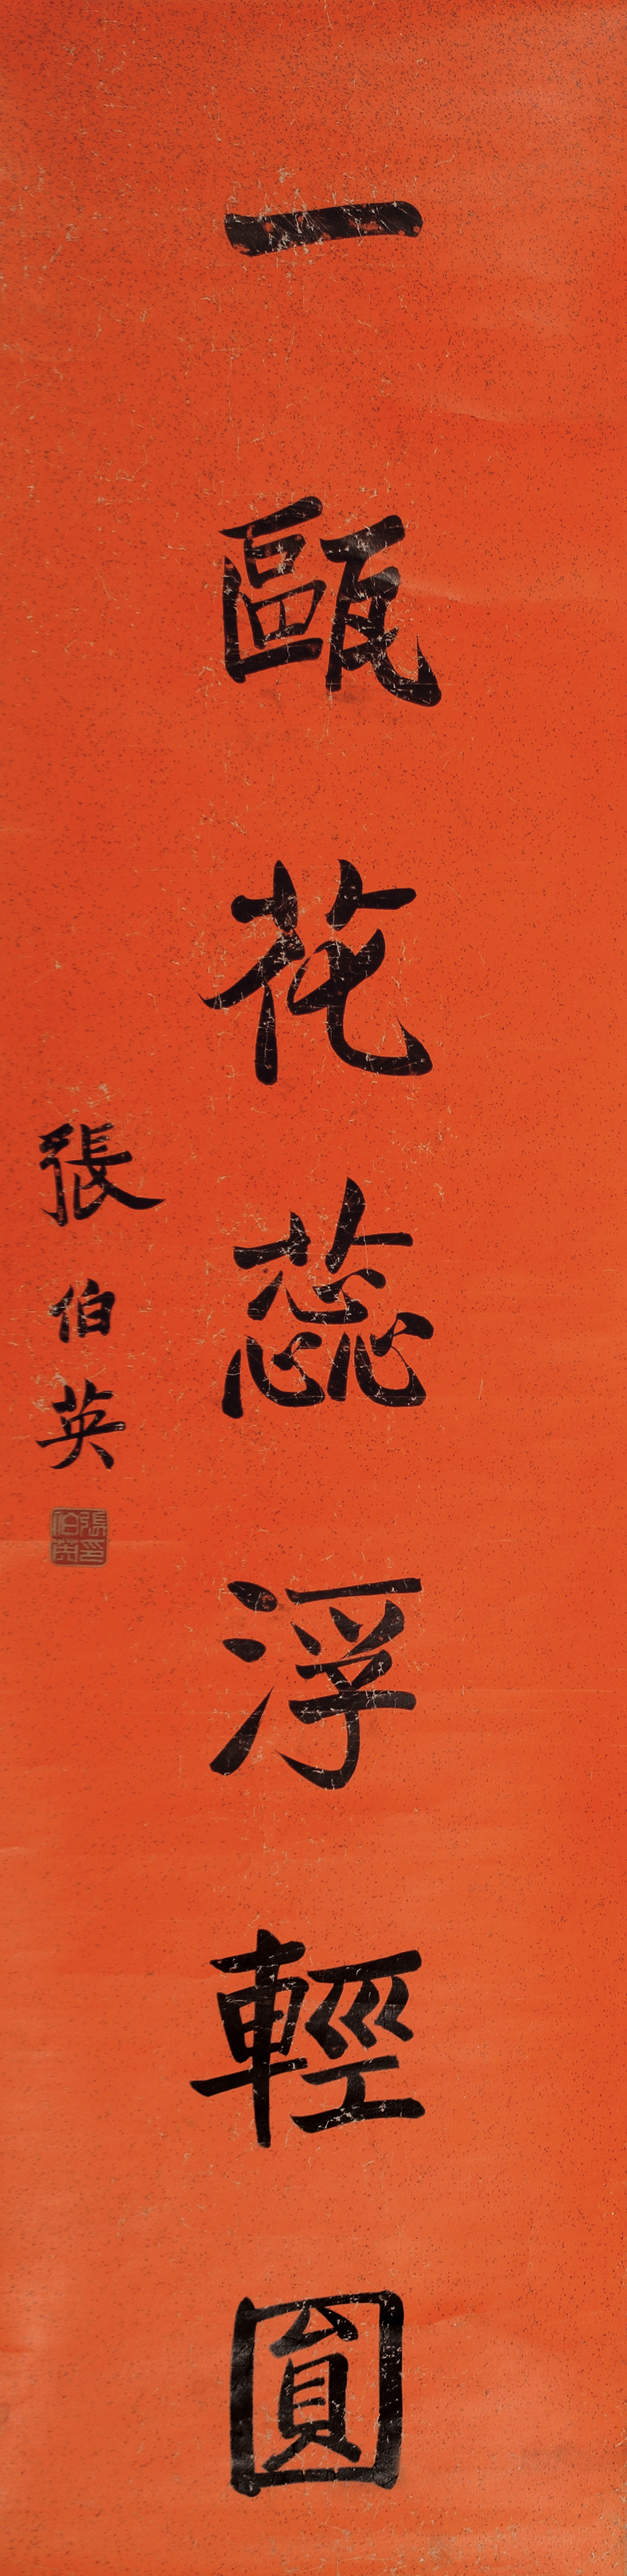 一甌花蕊浮輕圓
張伯英
張伯英印